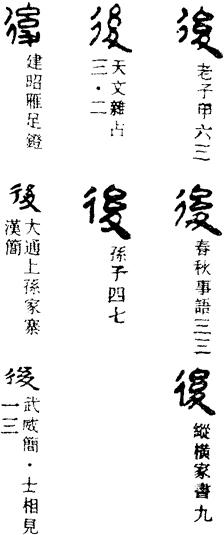 後
老子甲六三
後
春秋事語三三
後
縱橫家書九
後
天文雜占
三・二
後
孫子四七
後
建昭雁足鐙
後
大通上孫家寨
漢簡
後
武威簡・士相見
一三